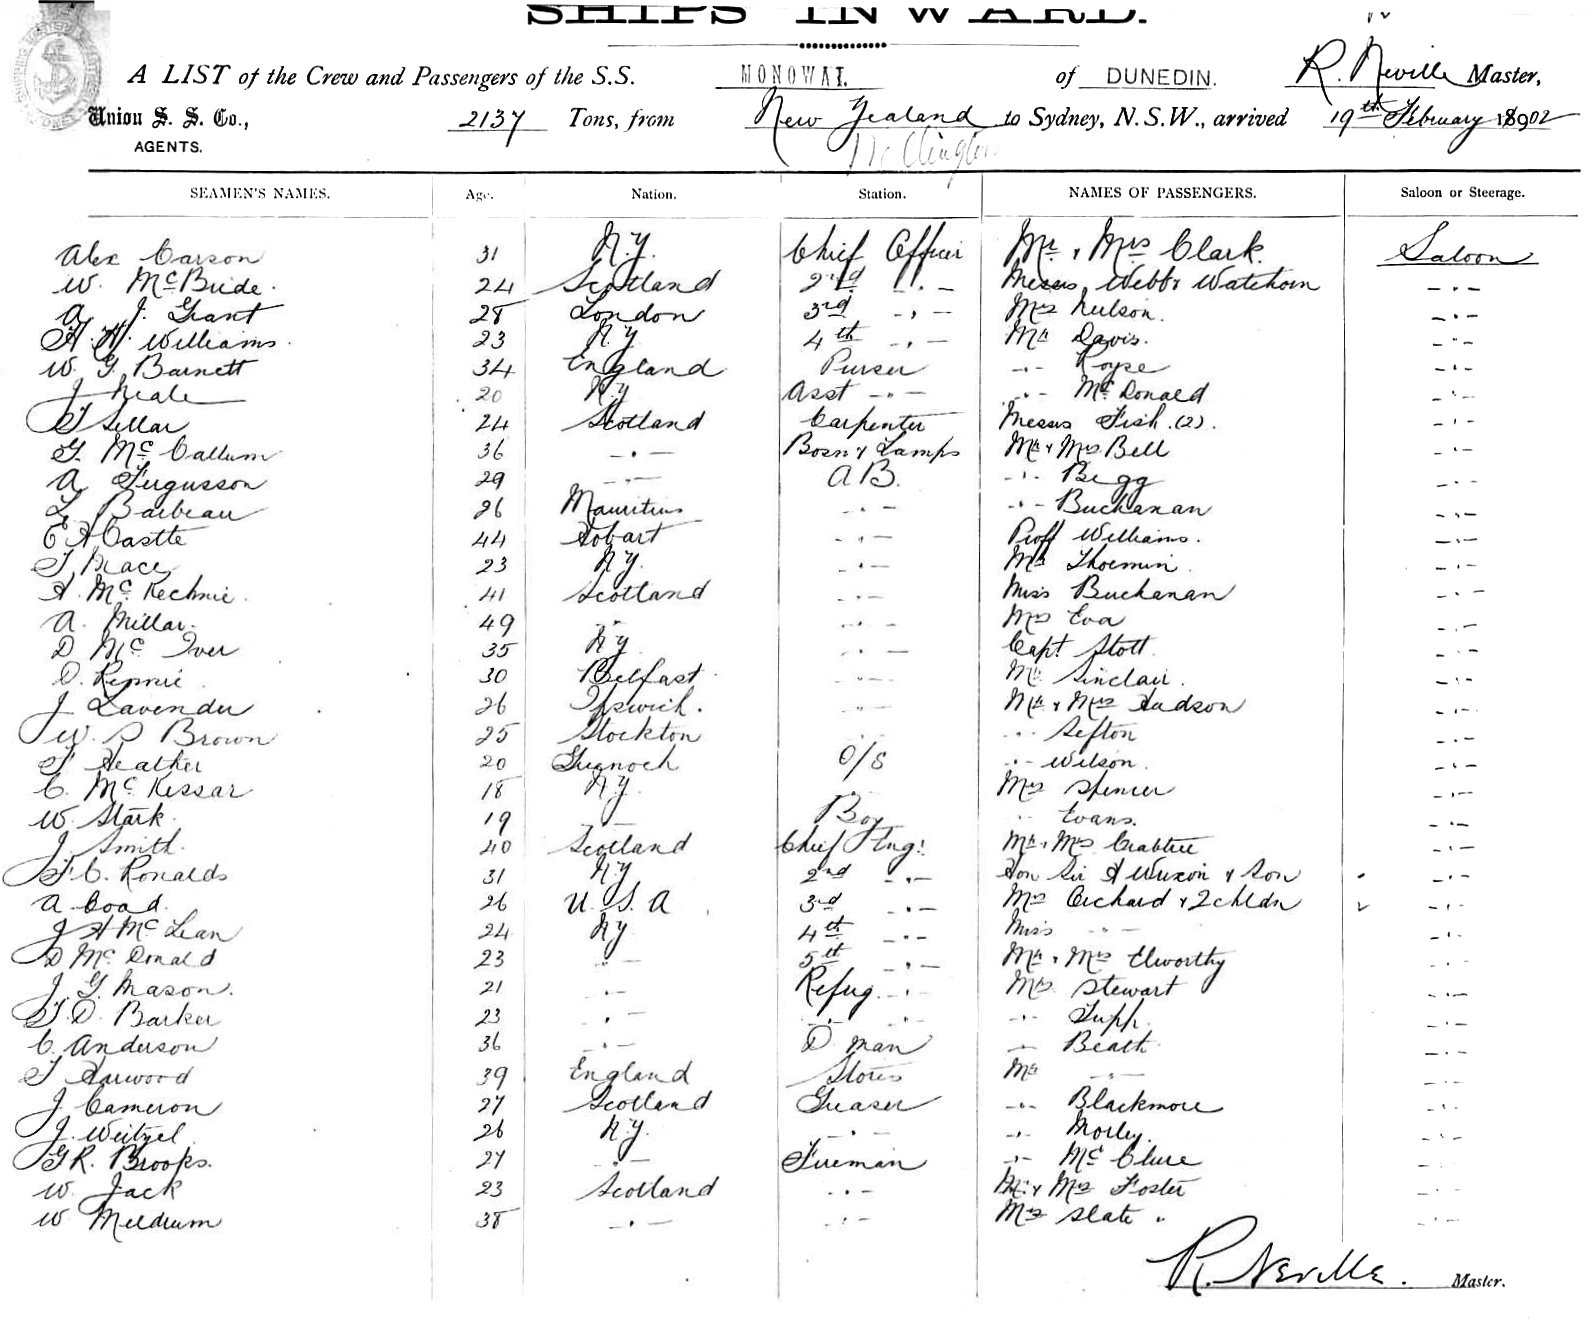 SHIPS INWARD.
A LIST of the Crew and Passengers of the S.S. MONOWAI. of DUNEDIN. R. Neville Master,
Union S. S. Co., 2137 Tons, from New Zealand to Sydney, N.S.W., arrived 19th February 18902
AGENTS. Wellington
SEAMEN'S NAMES. Age. Nation. Station. NAMES OF PASSENGERS. Saloon or Steerage.
Alex Carson 31 N.Z. Chief Officer Mr & Mrs Clark. Saloon
W. McBride. 24 Scotland 2nd " Messrs Webb & Watehorn "
A J. Grant 28 London 3rd " Mrs Neilson. "
H. H. Williams. 23 N.Z. 4th " Mr Davis. "
W. G. Barnett 34 England Purser " Royse "
J Neale 20 N.Z. Asst " " McDonald "
T Sellar 24 Scotland Carpenter Messrs Fish. (2). "
G. McCallum 36 " Bosn & Lamps Mr & Mrs Bell "
A Fergusson 29 " A B. " Begg "
L Barbeau 26 Mauritius " " Buchanan "
E A Castle 44 Hobart " Proff Williams. "
T Brace 23 N.Z. " Mr "
H. McKechnie. 41 Scotland " Miss Buchanan "
A. Millar. 49 " " Mrs Eva "
D McIver 35 N.Z. " Capt. Stott. "
D. Rennie 30 Belfast " Mr Sinclair. "
J Lavender 26 Ipswich. " Mr & Mrs Hudson "
W. S Brown 25 Stockton " " Sefton "
F Heather 20 Greenock O/S " Wilson. "
C. McKessar 18 N.Z. " Mrs Spencer "
W. Stark. 19 " Boy " Evans. "
J. Smith. 40 Scotland Chief Eng. Mr & Mrs Crabtree "
F. C. Ronalds 31 N.Z. 2nd " Hon Sir A & Son "
A. Coad. 26 U. S. A 3rd " Mrs Orchard & 2 chldn "
J A McLean 24 N.Z. 4th " Miss " "
D McDonald 23 " 5th " Mr & Mrs Elworthy "
J. G. Mason. 21 " Refrig. " Mrs Stewart "
T. D. Barker 23 " " " Tripp. "
C. Anderson 36 " D. man " Beath "
T Harwood 39 England Stores Mr " "
J Cameron 27 Scotland Greaser " Blackmore "
J. Weitzel 26 N.Z. " " Morley. "
G R. Brooks. 27 " Fireman " McClure "
W. Jack 23 Scotland " Mr & Mrs Foster "
W Meldrum 38 " " Mrs Slate " "
R. Neville. Master.